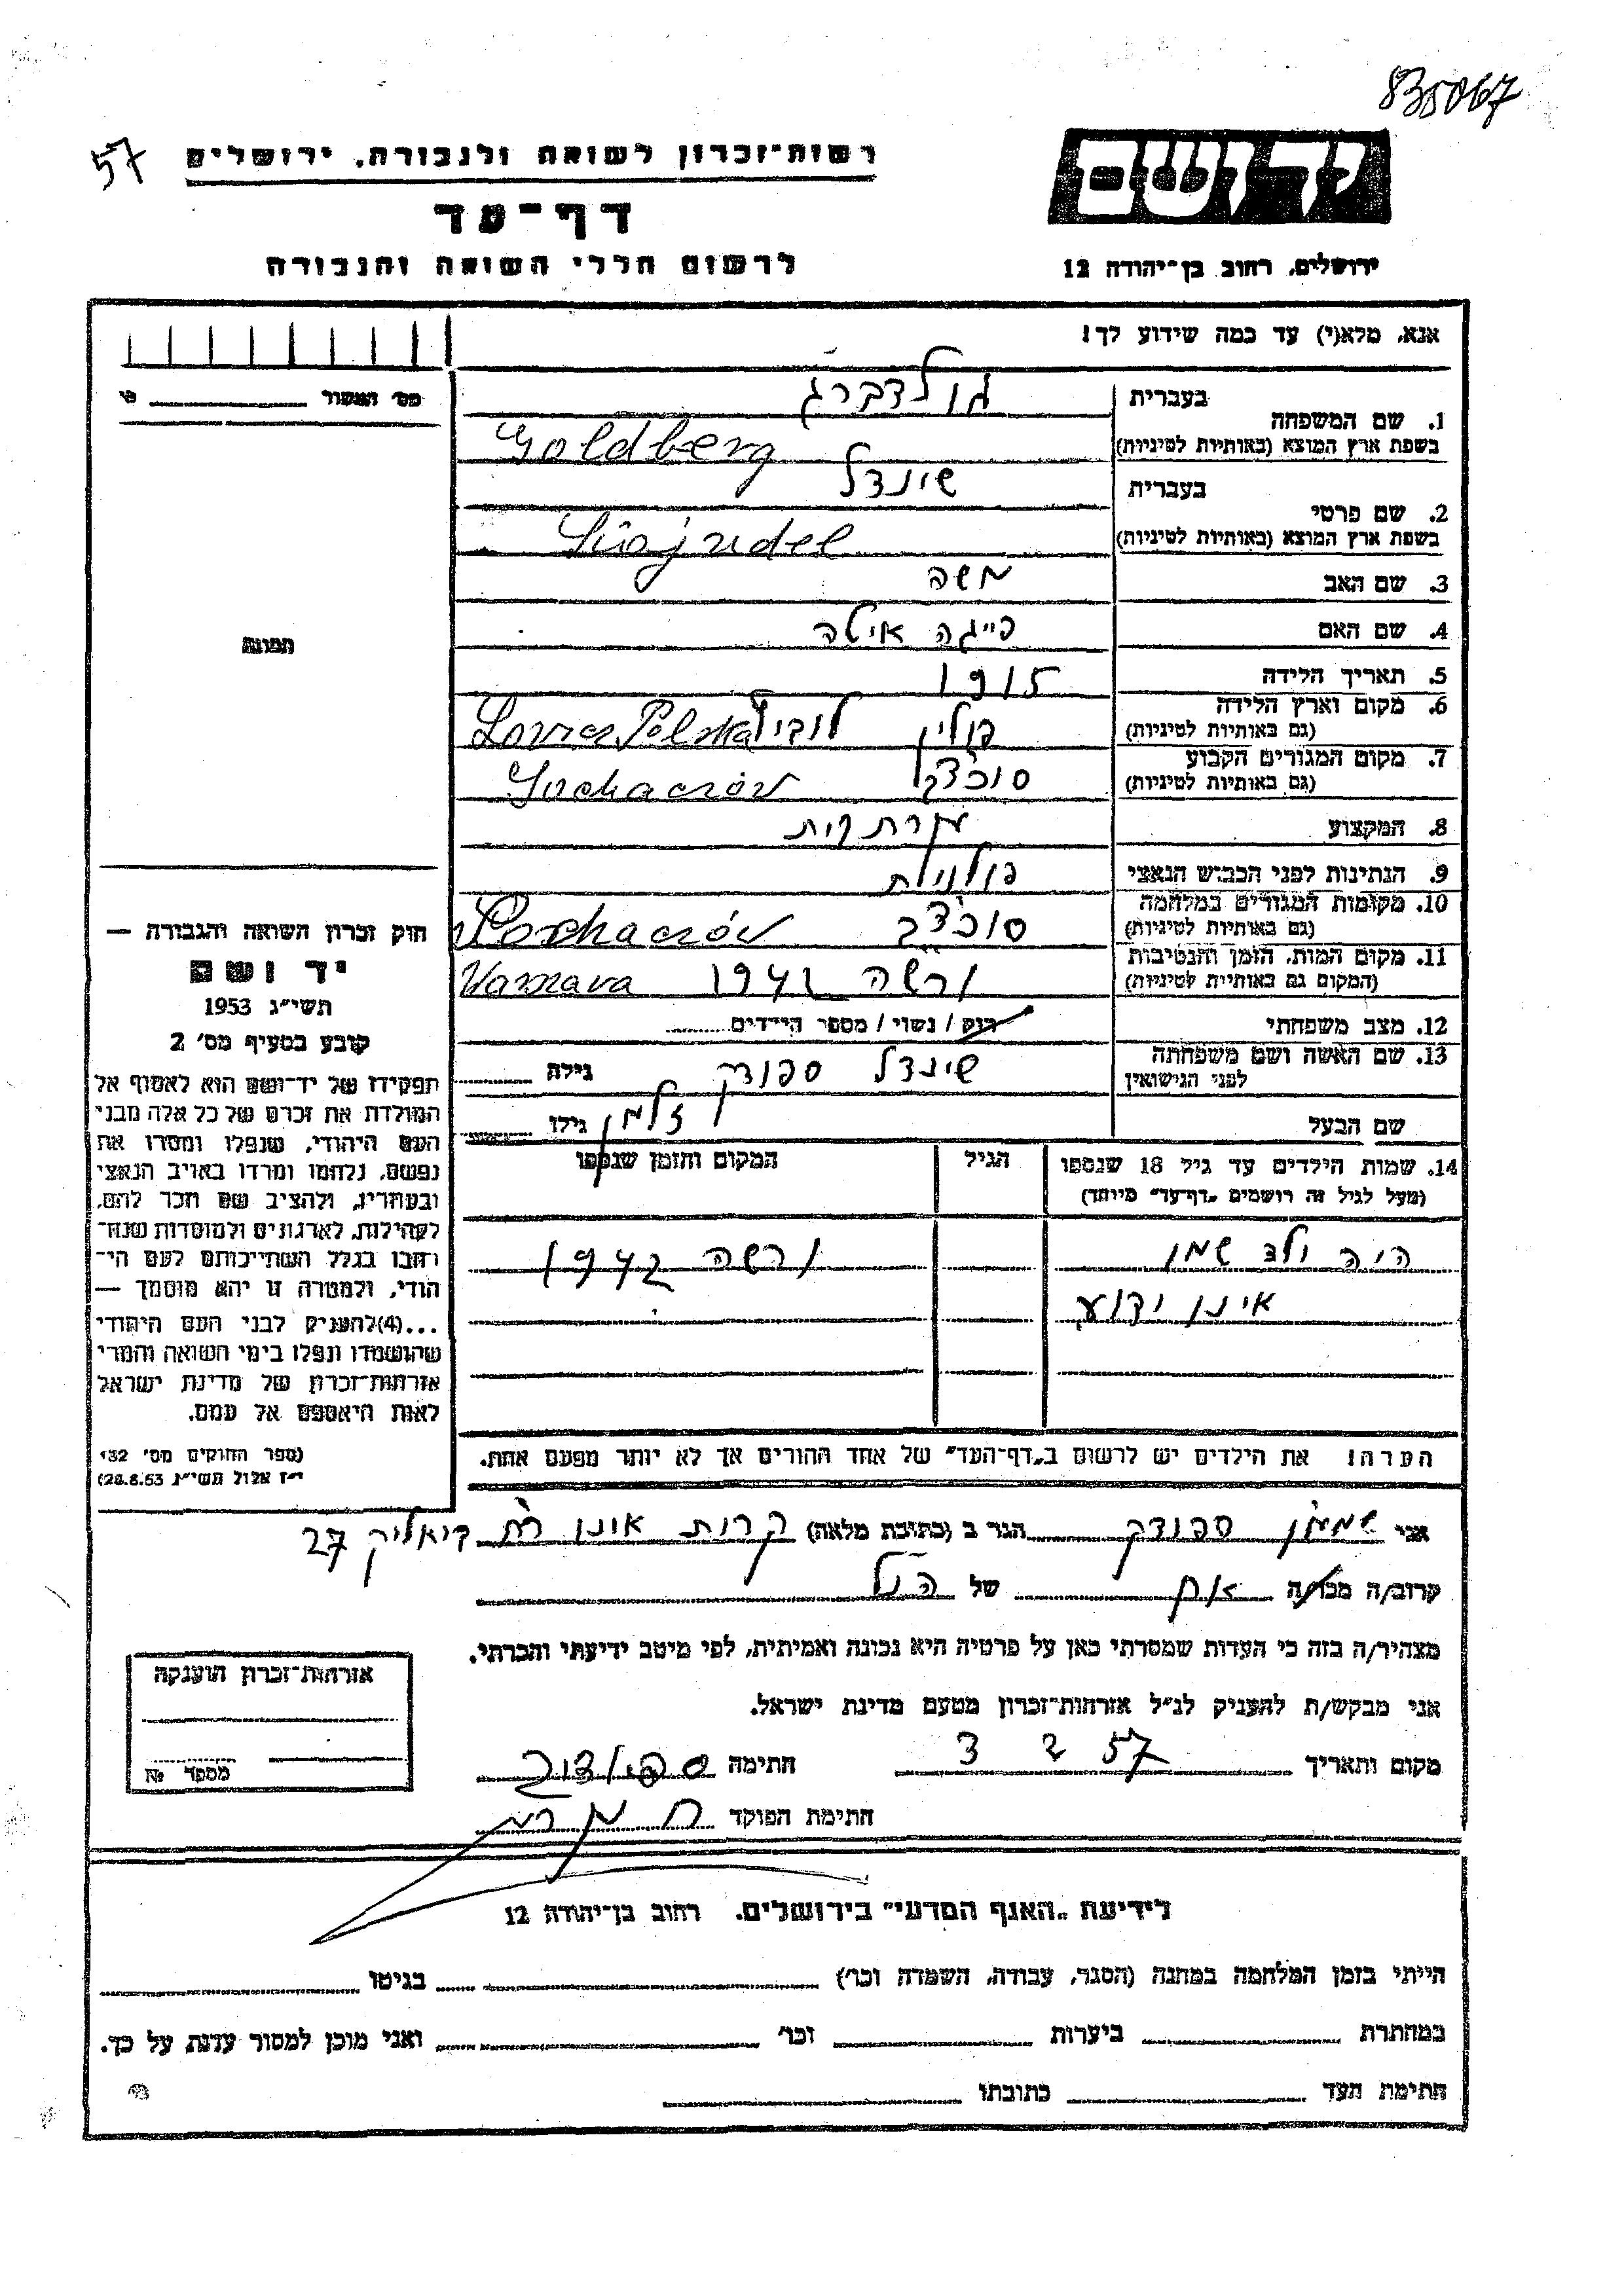 835067
57
רשות־זכרון לשואה ולגבורה, ירושלים
יד ושם
דף־עד
לרשום חללי השואה והגבורה
ירושלים, רחוב בן־יהודה 12
אנא, מלא(י) עד כמה שידוע לך!
מס׳ האשור
1. שם המשפחה בעברית גולדברג
בשפת ארץ המוצא (באותיות לטיניות) Goldberg
2. שם פרטי בעברית שינדל
בשפת ארץ המוצא (באותיות לטיניות)
3. שם האב משה
4. שם האם פייגה איטה
5. תאריך הלידה 1915
6. מקום וארץ הלידה (גם באותיות לטיניות) פולין לוביץ Polska
7. מקום המגורים הקבוע (גם באותיות לטיניות) סוכצ'ב Sochaczów
8. המקצוע
9. הנתינות לפני הכבוש הנאצי פולנית
10. מקומות המגורים במלחמה (גם באותיות לטיניות) סוכצ'ב Sochaczów
11. מקום המות, הזמן והנסיבות (המקום גם באותיות לטיניות) ורשה 1942 Warszawa
12. מצב משפחתי רווק / נשוי / מספר הילדים
13. שם האשה ושם משפחתה לפני הנישואין שינדל ספודק גילה
שם הבעל זלמן גילו
14. שמות הילדים עד גיל 18 שנספו הגיל המקום והזמן שנספו
(מעל לגיל זה רושמים „דף־עד" מיוחד)
היה ולד שמו ורשה 1942
אינו ידוע
הערה! את הילדים יש לרשום ב„דף־העד" של אחד ההורים אך לא יותר מפעם אחת.
תמונה
חוק זכרון השואה והגבורה —
יד ושם
תשי״ג 1953
קובע בסעיף מס׳ 2
תפקידו של יד־ושם הוא לאסוף אל
המולדת את זכרם של כל אלה מבני
העם היהודי, שנפלו ומסרו את
נפשם, נלחמו ומרדו באויב הנאצי
ובעוזריו, ולהציב שם וזכר להם,
לקהילות, לארגונים ולמוסדות שנח־
רבו בגלל השתייכותם לעם הי־
הודי, ולמטרה זו יהא מוסמך —
...(4)להעניק לבני העם היהודי
שהושמדו ונפלו בימי השואה והמרי
אזרחות־זכרון של מדינת ישראל
לאות היאספם אל עמם.
(ספר החוקים מס׳ 132
י״ז אלול תשי״ג 28.8.53)
אני שמעון ספודק הגר ב (כתובת מלאה) קרית אונו רח' ביאליק 27
קרוב/ה מכר/ה אח של הנ"ל
מצהיר/ה בזה כי העדות שמסרתי כאן על פרטיה היא נכונה ואמיתית, לפי מיטב ידיעתי והכרתי.
אני מבקש/ת להעניק לנ״ל אזרחות־זכרון מטעם מדינת ישראל.
מקום ותאריך 3 2 57 חתימה
חתימת הפוקד
אזרחות־זכרון הוענקה
מספר №
לידיעת „האגף המדעי" בירושלים, רחוב בן־יהודה 12
הייתי בזמן המלחמה במחנה (הסגר, עבודה, השמדה וכו׳) בגיטו
במחתרת ביערות וכו׳ ואני מוכן למסור עדות על כך.
חתימת העד כתובתו